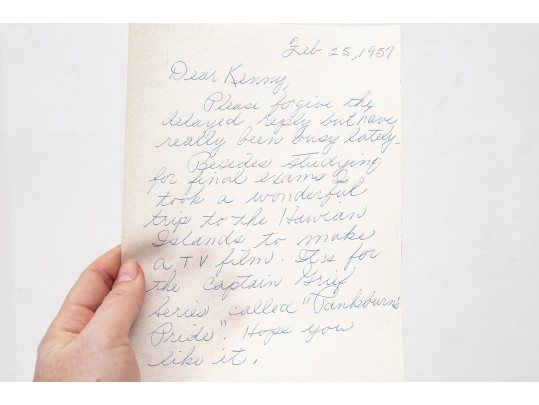 Feb 25, 1957
Dear Kenny,
Please forgive the
delayed reply but have
really been busy lately-
Besides studying
for final exams I
took a wonderful
trip to the Hawian
Islands to make
a T.V film. Its for
the Captain Grief
series called "Panksburns
Pride". Hope you
like it.